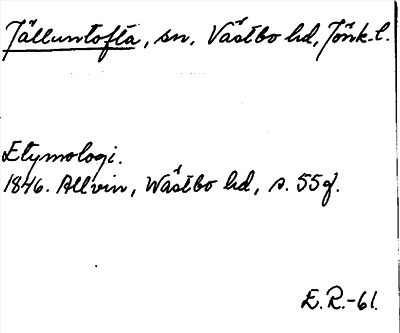 Jälluntofta, sn, Västbo hd, Jönk. l.
Etymologi.
1846. Allvin, Wästbo hd, s. 55 f.
E.R.-61.